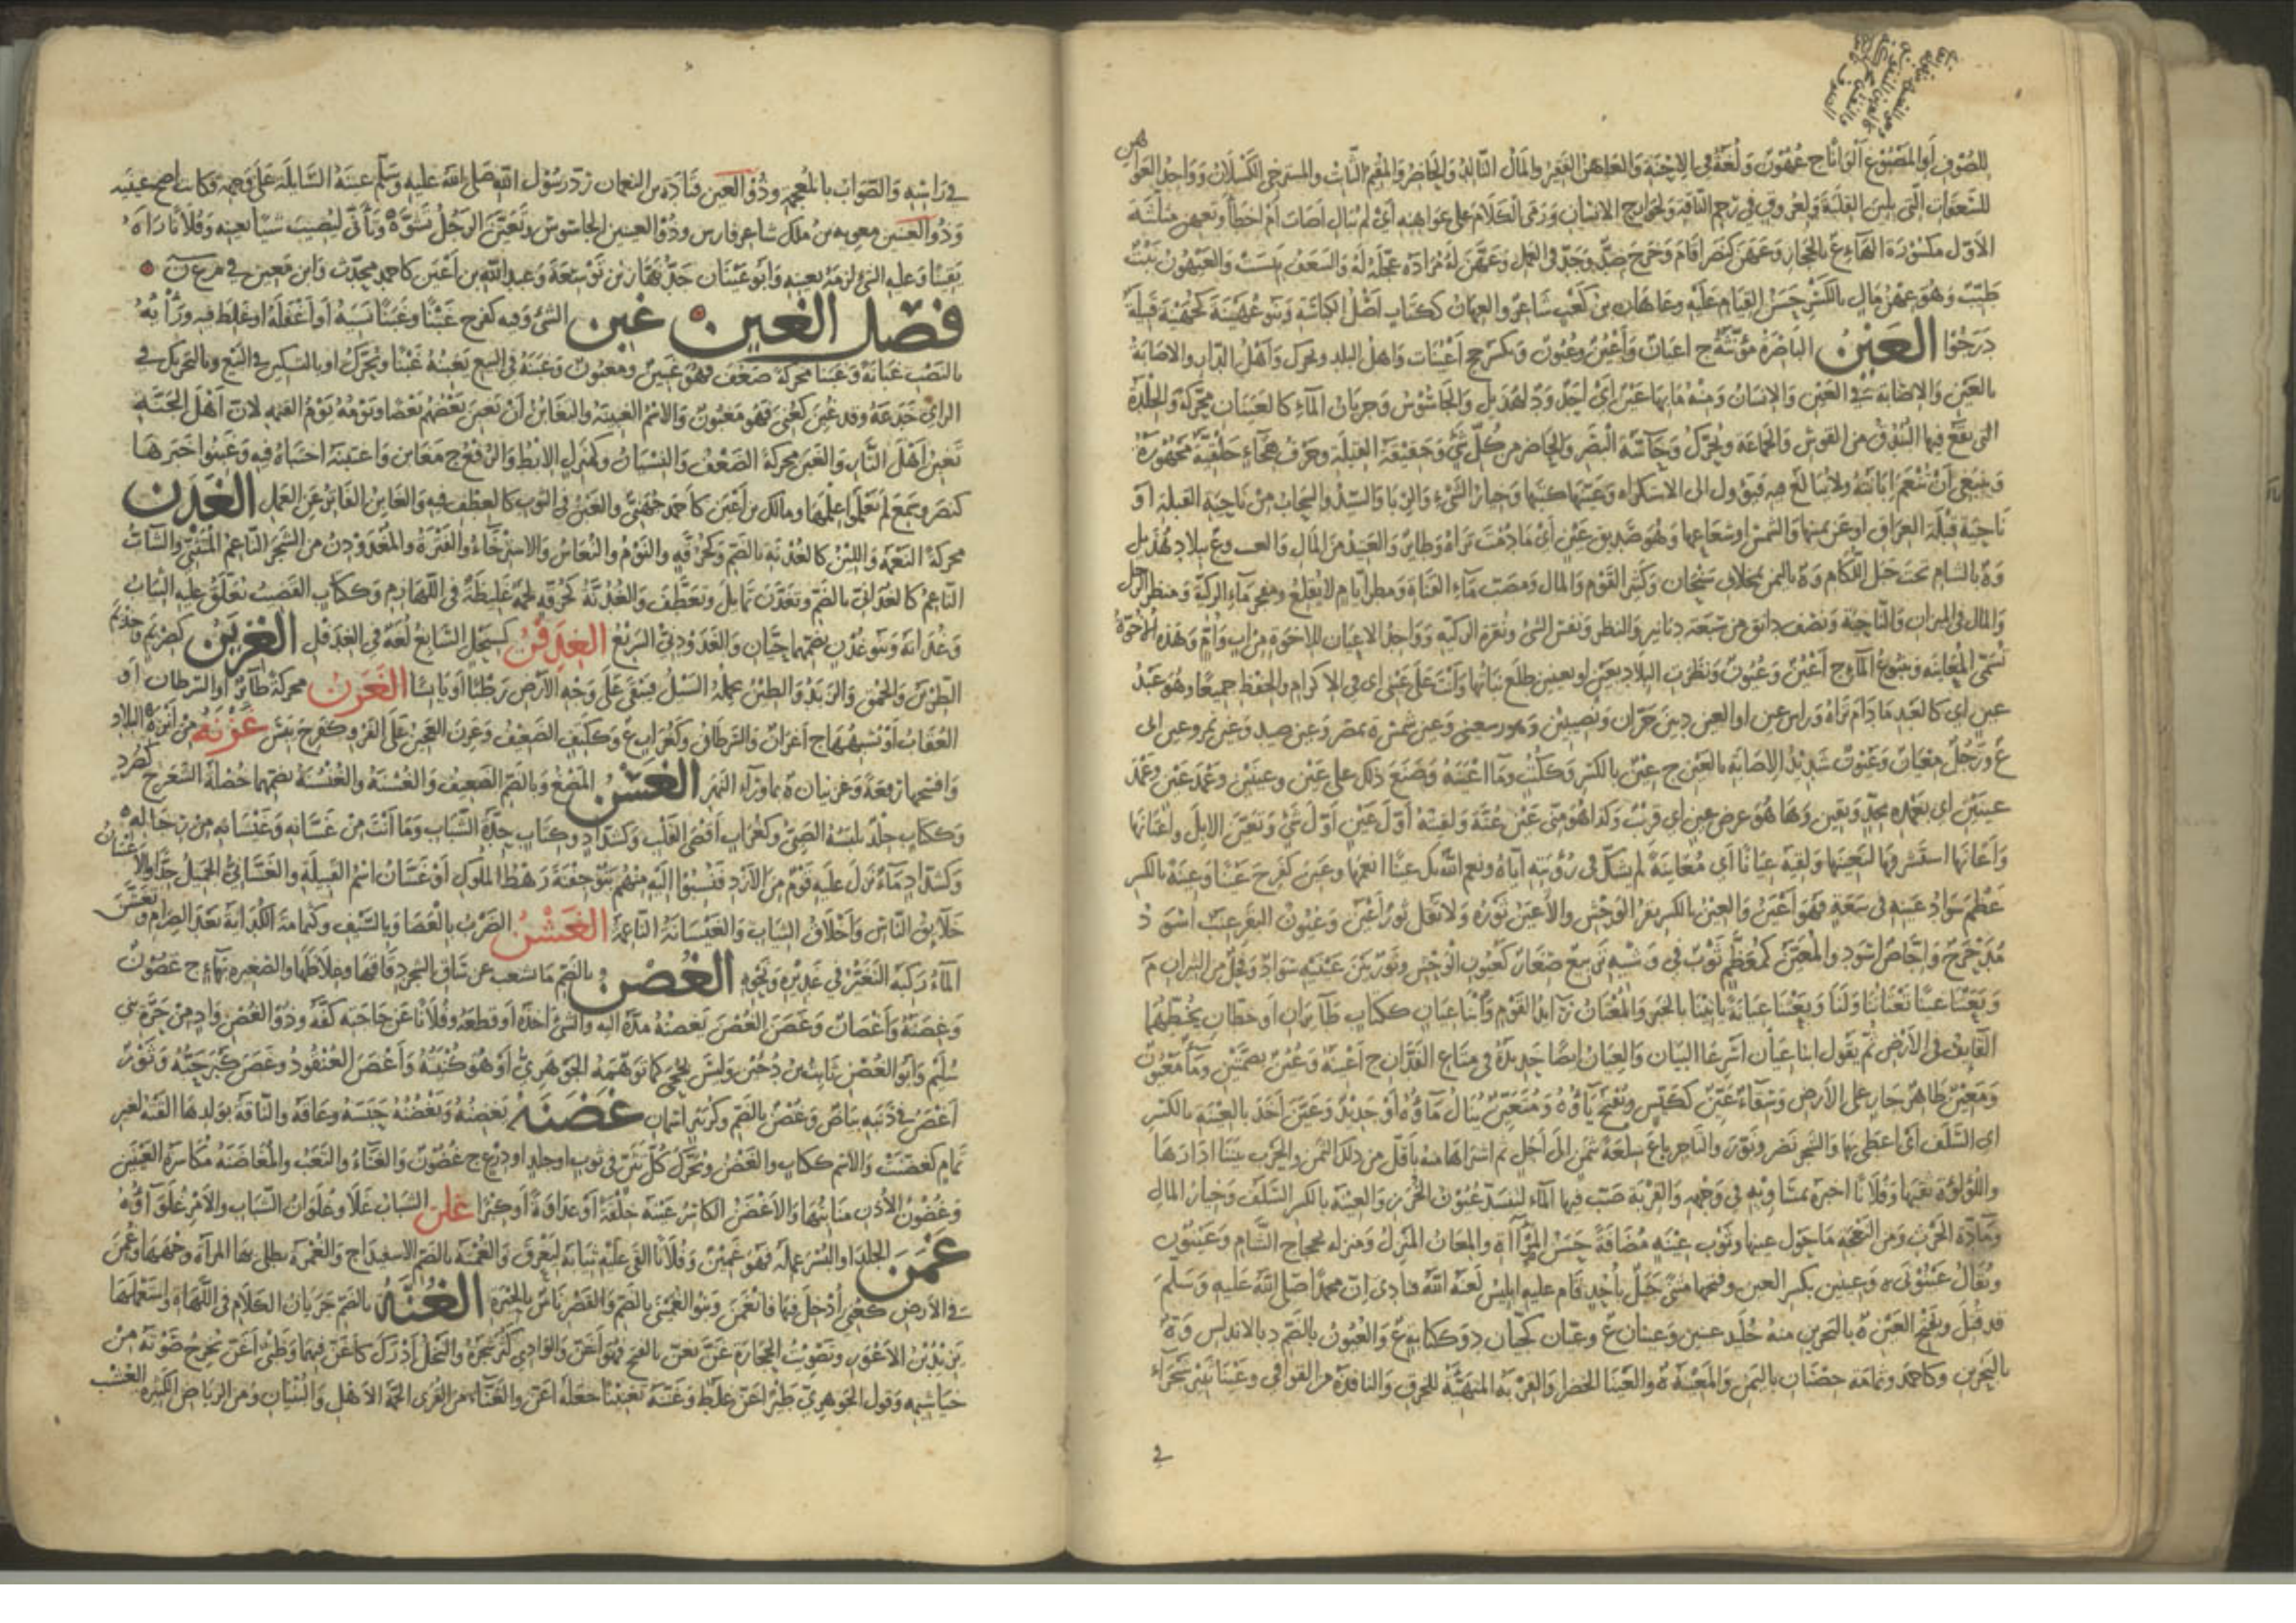 للصوف أو المصبوغ ألوانا ج عهون ولغة في الإحنة والعاهن الفقير والمال التالد والحاضر والمقيم الثابت والمسترخي الكسلان وواحد العواهن
للسعفات التي يلين القلبة ولعروق في رحم الناقة ولجوارح الإنسان ورمى الكلام على عواهنه أي لم يبال أصاب أم أخطأ
الأول مكسورة الهاء ع بالحجاز وعهن كنصر أقام وخرج ضد وجد في العمل وعهن له مراده عجله له والسعف يبست والعيهون نبت
طيب وهو عهن مال بالكسر حسن القيام عليه وعاهان بن كعب شاعر والعهان ككتاب أصل الكباسة وبنو عهينة كجهينة قبيلة
درجوا العين الباصرة مؤنثة ج أعيان وأعين وعيون ويكسر جج أعينات وأهل البلد ويحرك وأهل الدار والإصابة
بالعين والإصابة في العين والإنسان ومنه ما بها عين أي أحد ود لهذيل والجاسوس وجريان الماء كالعينان محركة والجلدة
التي يقع فيها البندق من القوس والجماعة ويحرك وحاسة البصر والحاضر من كل شيء وحقيقة القبلة وحرف هجاء حلقية مجهورة
وينبغي أن تنعم إبانته ولا يبالغ فيه فيؤول إلى الاستكراه وعينها كتبها وخيار الشيء والربا والسيد والسحاب من ناحية القبلة أو
ناحية قبلة العراق أو عن يمينها والشمس أو شعاعها وهو صديق عين أي ما دمت تراه وطائر والعتيد من المال والعيب وع ببلاد هذيل
وة بالشام تحت جبل اللكام وة باليمن بمخلاف سنحان وكبير القوم والمال ومصب ماء القناة ومطر أيام لا يقلع ومفجر ماء الركية ومنظر الرجل
والميل في الميزان والناحية ونصف دانق من سبعة دنانير والنظر ونفس الشيء ونقرة الركبة وواحد الأعيان للإخوة من أب وأم وهذه الأخوة
تسمى المعاينة وينبوع الماء ج أعين وعيون ونظرت البلاد بعين أو بعينين طلع نباتها وأنت على عيني أي في الإكرام والحفظ جميعا وهو عبد
عين أي كالعبد ما دام تراه ورأس عين أو العين د بين حران ونصيبين وعين شمس ة بمصر وعين صيد وعين تمر وعين أبي
ع ورجل معيان وعيون شديد الإصابة بالعين ج عين بالكسر وككتب وما أعينه وصنع ذلك على عين وعينين وعمد عين وعمد
عينين أي تعمده بجد ويقين وها هو عرض عين أي قريب وكذا هو مني عين عنة ولقيته أول عين أول شيء وتعين الإبل واعتانها
وأعانها استشرفها ليعينها ولقيه عيانا أي معاينة لم يشك في رؤيته إياه ونعم الله بك عينا أنعمها وعين كفرح عينا وعينة بالكسر
عظم سواد عينه في سعة فهو أعين والعين بالكسر بقر الوحش والأعين ثوره ولا تقل ثور أعين وعيون البقر عنب أسود
مدحرج وإجاص أسود والمعين كمعظم ثوب في وشيه ترابيع صغار كعيون الوحش وثور بين عينيه سواد
وبعثنا عينا يعتاننا ولنا ويعيننا عيانة يأتينا بالخبر والمعتان رائد القوم وابنا عيان ككتاب طائران أو خطان يخطهما
القائف في الأرض ثم يقول ابنا عيان أسرعا البيان والعيان أيضا حديدة في متاع الفدان ج أعينة وعين بضمتين وماء معيون
ومعين ظاهر جار على الأرض وسقاء عين ككيس وتفتح ياؤه ومتعين سال ماؤه أو جديد وعين أخذ بالعينة بالكسر
أي السلف أو أعطى بها والشجر نضر ونور والتاجر باع سلعته بثمن إلى أجل ثم اشتراها منه بأقل من ذلك الثمن والحرب بيننا أدارها
واللؤلؤة ثقبها وفلانا أخبره بمساويه في وجهه والقربة صب فيها الماء لتنسد عيون الخرز والعينة بالكسر السلف وخيار المال
ومادة الحرب ومن النعجة ما حول عينها وثوب عينة مضافة حسن المرآة والمعان المنزل ومنزلة لحجاج الشام وعينون
ويقال عينونى ة وعينين بكسر العين وفتحها مثنى جبل بأحد قام عليه إبليس لعنه الله فنادى إن محمدا صلى الله عليه وسلم
قد قتل وبفتح العين ة بالبحرين منه خليد عينين وعينان ع وعيان كجبان د وككتابة ع والعيون بالضم د بالأندلس وة
بالبحرين وكأحمد وثمامة حصنان باليمن والمعينة ة والعينا الخضرا والقربة المتهيئة للخرق والنافذة من القوافي وعينا ثبير شجراء
في
في رأسه والصواب بالمعجمة وذو العين قتادة بن النعمان رد رسول الله صلى الله عليه وسلم عينه السائلة على وجهه فكانت أصح عينيه
وذو العينين معوية بن ملك شاعر فارس وذو العينين الجاسوس وتعين الرجل تشوه وتأنى ليصيب شيئا بعينه وفلانا رآه
يقينا وعليه الشيء لزمه بعينه وأبو عينان جد نهار بن توسعة وعبد الله بن أعين كأحمد محدث وابن معين في م ع ن
فصل الغين غبن الشيء وفيه كفرح غبنا وغبنا نسيه أو أغفله أو غلط فيه ورأيه
بالنصب غبانة وغبنا محركة ضعف فهو غبين ومغبون وغبنه في البيع يغبنه غبنا ويحرك أو بالتسكين في البيع وبالتحريك في
الرأي خدعه وقد غبن كعني فهو مغبون والاسم الغبينة والتغابن أن يغبن بعضهم بعضا ويوم التغابن يوم القيمة لأن أهل الجنة
تغبن أهل النار والغبن محركة الضعف والنسيان وكمنزل الإبط والرفغ ج مغابن واغتبنه اختبأه فيه وغبنوا خبرها
كنصر وسمع لم يعلموا علمها ومالك بن أغبن كأحمد جهني والغبن في الثوب كالعطف فيه والغابن الفاتر عن العمل الغدن
محركة النعمة واللين كالغدنة بالضم وكحزقة والنوم والنعاس والاسترخاء والفترة والمغدودن من الشجر الناعم المتثني والشاب
الناعم كالغدانى بالضم وتغدن تمايل وتعطف والغدنة كحزقة لحمة غليظة في اللهازم وككتاب القضيب تعلق عليه الثياب
وغدانة وبنو غدن بضمهما حيان والغدودن السريع الغدفن كسبحل السابغ لغة في الغدفل الغرين كصريم وحذيم
الطين والحمق والزبد والطين يحمله السيل فيبقى على وجه الأرض رطبا أو يابسا الغرن محركة طائر أو السرطان أو
العقاب أو شبيهها ج أغران والسرطان وكغراب ع وككتف الضعيف وغرن العجين على الفرو كفرح يبس غزنة من أنزه البلاد
وأفسحها رقعة وغزنيان ة بما وراء النهر الغسن المضغ وبالضم الضعيف والغسنة والغسناة بضمهما خصلة الشعر ج كصرد
وككتاب جلد يلبسه الصبي وكغراب أقصى القلب وكشداد وكتاب حدة الشباب وما أنت من غسانه وغيسانه من رجاله
وكشداد ماء نزل عليه قوم من الأزد فنسبوا إليه منهم بنو جفنة رهط الملوك أو غسان اسم القبيلة والغساني الجميل جدا والأغسان
خلائق الناس وأخلاق الثياب والغيسانة الناعمة الغشن الضرب بالعصا وبالسيف وكثمامة الكرابة بعد الصرام وتغشن
الماء ركبه البعر في غدير ونحوه الغصن بالضم ما تشعب عن ساق الشجر دقاقها وغلاظها والصغيرة بهاء ج غصون
وغصنة وأغصان وغصن الغصن يغصنه مده إليه والشيء أخذه أو قطعه وفلانا عن حاجته كفه وذو الغصن واد من حرة بني
سليم وأبو الغصن ثابت بن دجين وليس بجحى كما توهمه الجوهري أو هو كنيته وأغصن العنقود وغصن كبر حبه وثور
أغصن في ذنبه بياض وغصن بالضم وكزبير اسمان غضنه يغضنه ويغضنه حبسه وعاقه والناقة بولدها ألقته لغير
تمام كغضنت والاسم ككتاب والغضن ويحرك كل تثن في ثوب أو جلد أو درع ج غضون والغناء والتعب والمغاضنة مكاسرة العينين
وغضون الأذن مثانيها والأغضن الكاسر عينه خلقة أو عداوة أو كبرا غلن الشباب غلا وغلوان الشباب والأمر غلواؤه
غمن الجلد أو البسر غمله فهو غمين وفلانا ألقى عليه ثيابه ليعرق والغمنة بالضم الاسفيداج والغمرة تطلي بها المرأة وجهها وغمن
في الأرض كعني أدخل فيها فانغمن وبنو الغميني بالضم والقصر ناس بالحيرة الغنة بالضم جريان الكلام في اللهاة واستعملها
يزيد بن الأعور في تصويت الحجارة غن يغن بالفتح فهو أغن والوادي كثر شجره والنخل أدرك كأغن فيهما وظبي أغن يخرج صوته من
خياشيمه وقول الجوهري طير أغن غلط وغنه تغنينا جعله أغن والغناء من القرى الجمة الأهل والبنيان ومن الرياض الكثيرة العشب